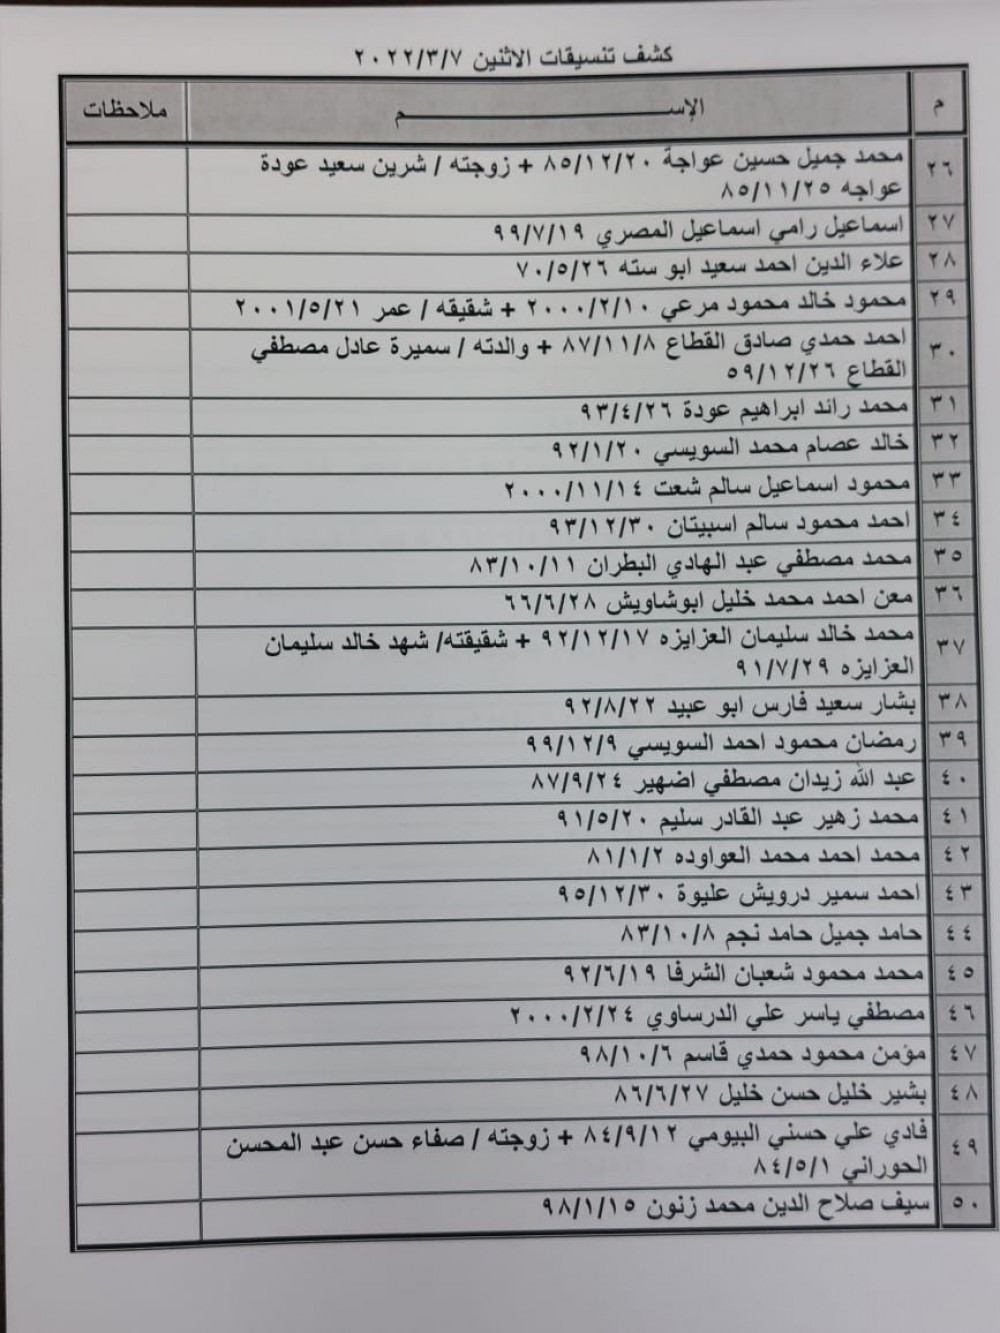 كشف تنسيقات الاثنين ٢٠٢٢/٣/٧
م الإســـــــــــــم ملاحظات
٢٦ محمد جميل حسين عواجة ٨٥/١٢/٢٠ + زوجته / شرين سعيد عودة
عواجه ٨٥/١١/٢٥
٢٧ اسماعيل رامي اسماعيل المصري ٩٩/٧/١٩
٢٨ علاء الدين احمد سعيد ابو سته ٧٠/٥/٢٦
٢٩ محمود خالد محمود مرعي ٢٠٠٠/٢/١٠ + شقيقه / عمر ٢٠٠١/٥/٢١
٣٠ احمد حمدي صادق القطاع ٨٧/١١/٨ + والدته / سميرة عادل مصطفي
القطاع ٥٩/١٢/٢٦
٣١ محمد رائد ابراهيم عودة ٩٣/٤/٢٦
٣٢ خالد عصام محمد السويسي ٩٢/١/٢٠
٣٣ محمود اسماعيل سالم شعت ٢٠٠٠/١١/١٤
٣٤ احمد محمود سالم اسبيتان ٩٣/١٢/٣٠
٣٥ محمد مصطفي عبد الهادي البطران ٨٣/١٠/١١
٣٦ معن احمد محمد خليل ابوشاويش ٦٦/٦/٢٨
٣٧ محمد خالد سليمان العزايزه ٩٢/١٢/١٧ + شقيقته/ شهد خالد سليمان
العزايزه ٩١/٧/٢٩
٣٨ بشار سعيد فارس ابو عبيد ٩٢/٨/٢٢
٣٩ رمضان محمود احمد السويسي ٩٩/١٢/٩
٤٠ عبد الله زيدان مصطفي اضهير ٨٧/٩/٢٤
٤١ محمد زهير عبد القادر سليم ٩١/٥/٢٠
٤٢ محمد احمد محمد العواوده ٨١/١/٢
٤٣ احمد سمير درويش عليوة ٩٥/١٢/٣٠
٤٤ حامد جميل حامد نجم ٨٣/١٠/٨
٤٥ محمد محمود شعبان الشرفا ٩٢/٦/١٩
٤٦ مصطفي ياسر علي الدرساوي ٢٠٠٠/٢/٢٤
٤٧ مؤمن محمود حمدي قاسم ٩٨/١٠/٦
٤٨ بشير خليل حسن خليل ٨٦/٦/٢٧
٤٩ فادي علي حسني البيومي ٨٤/٩/١٢ + زوجته / صفاء حسن عبد المحسن
الحوراني ٨٤/٥/١
٥٠ سيف صلاح الدين محمد زنون ٩٨/١/١٥